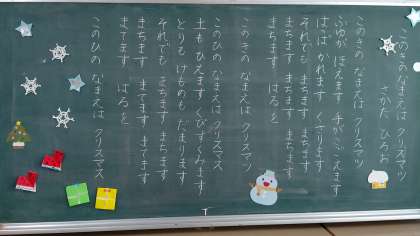 このきのなまえは クリスマツ
さかた ひろお
このきの なまえは クリスマツ
ふゆが ほえます 手が こごえます
はっぱ かれます くさります
それでも まちます まちます
まちます まちます まちます
まちます はるを
このきの なまえは クリスマツ
このひの なまえは クリスマス
土も ひえます くびすくみます
とりも けものも だまります
それでも まちます まちます
まちます まてます まてます
まてます はるを
このひの なまえは クリスマス